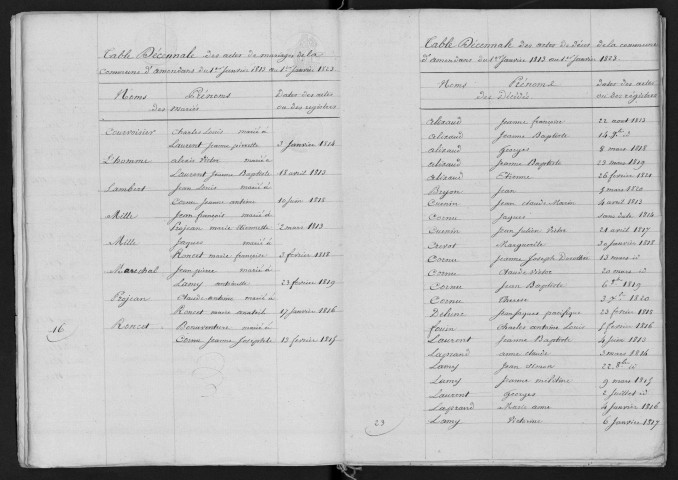 Table Décennale des actes de mariages de la
Commune d'amondans du 1er Janvier 1813 au 1er Janvier 1823.
Noms Prénoms Dates des actes
des mariés ou des registres
Courvoisier Charles Louis marié à
Laurent Jeanne pierrette 3 Janvier 1814
L'homme alexis Victor marié à
Laurent Jeanne Baptiste 18 avril 1813
Lambert Jean Louis marié à
Cornu Jeanne antoine 10 Juin 1818
Mille Jean françois marié à
Prejean marie 2 mars 1813
Mille Jaques marié à
Roncet marie françoise 3 février 1818
Marechal Jean pierre marié à
Lamy 23 février 1819
Prejean Claude antoine marié à
Roncet marie 17 janvier 1816
Roncet Bonaventure marié à
Cornu Jeanne Josephte 13 février 1815
16
Table Décennale des actes de décès de la commune
d'amondans du 1er Janvier 1813 au 1er Janvier 1823.
Noms Prénoms Dates des actes
des Décédés ou des régistres
Jeanne françoise 22 aout 1813
Jeanne Baptiste 14
georges 8 mars 1818
Jeanne Baptiste 23 mars 1819
Etienne 26 février 1821
Bryon Jean 8 mars 1820
Jean Claude Marie 4 avril 1813
Cornu Jaques sans date 1814
Jean Julien Victor 21 avril 1817
Marguerite 30 janvier 1818
Cornu Jeanne Joseph 13 mars id
Cornu Claude Victor 20 mars id
Cornu Jean Baptiste 6 1819
Cornu 3 1820
Jean Jaques pacifique 23 février 1818
Charles antoine Louis 5 février 1816
Laurent Jeanne Baptiste 4 juin 1813
Lagrand anne claude 3 mars 1814
Lamy Jean 22 id
Lamy Jeanne 9 mars 1815
Laurent Georges 2 juillet id
Lagrand Marie anne 4 janvier 1816
Lamy Victorine 6 janvier 1817
23